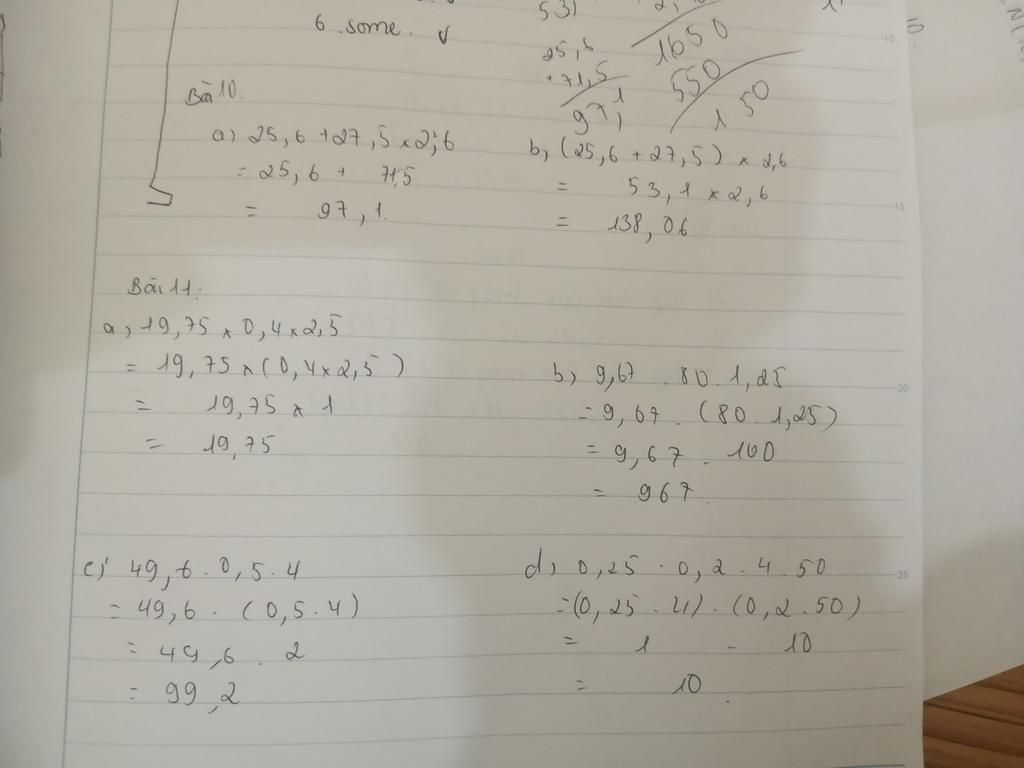 6. some.
531
25,6
+71,5
97,1
1650
550
150
Bài 10:
a) 25,6 + 27,5 x 2,6
= 25,6 + 71,5
= 97,1.
b, (25,6 + 27,5) x 2,6
= 53,1 x 2,6
= 138,06
Bài 11:
a, 19,75 x 0,4 x 2,5
= 19,75 x (0,4 x 2,5)
= 19,75 x 1
= 19,75
b, 9,67 . 80 . 1,25
= 9,67 . (80 . 1,25)
= 9,67 . 100
= 967.
c, 49,6 . 0,5 . 4
= 49,6 . (0,5 . 4)
= 49,6 . 2
= 99,2
d, 0,25 . 0,2 . 4 . 50
= (0,25 . 4) . (0,2 . 50)
= 1 - 10
= 10.
10
15
20
25